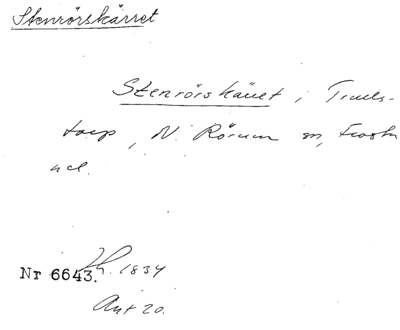 Stenrörskärret
Stenrörskäret i Truels-
torp, N. Rörum sn, Frosta
hd.
Nr 6643. Lh. 1834
Akt 20.